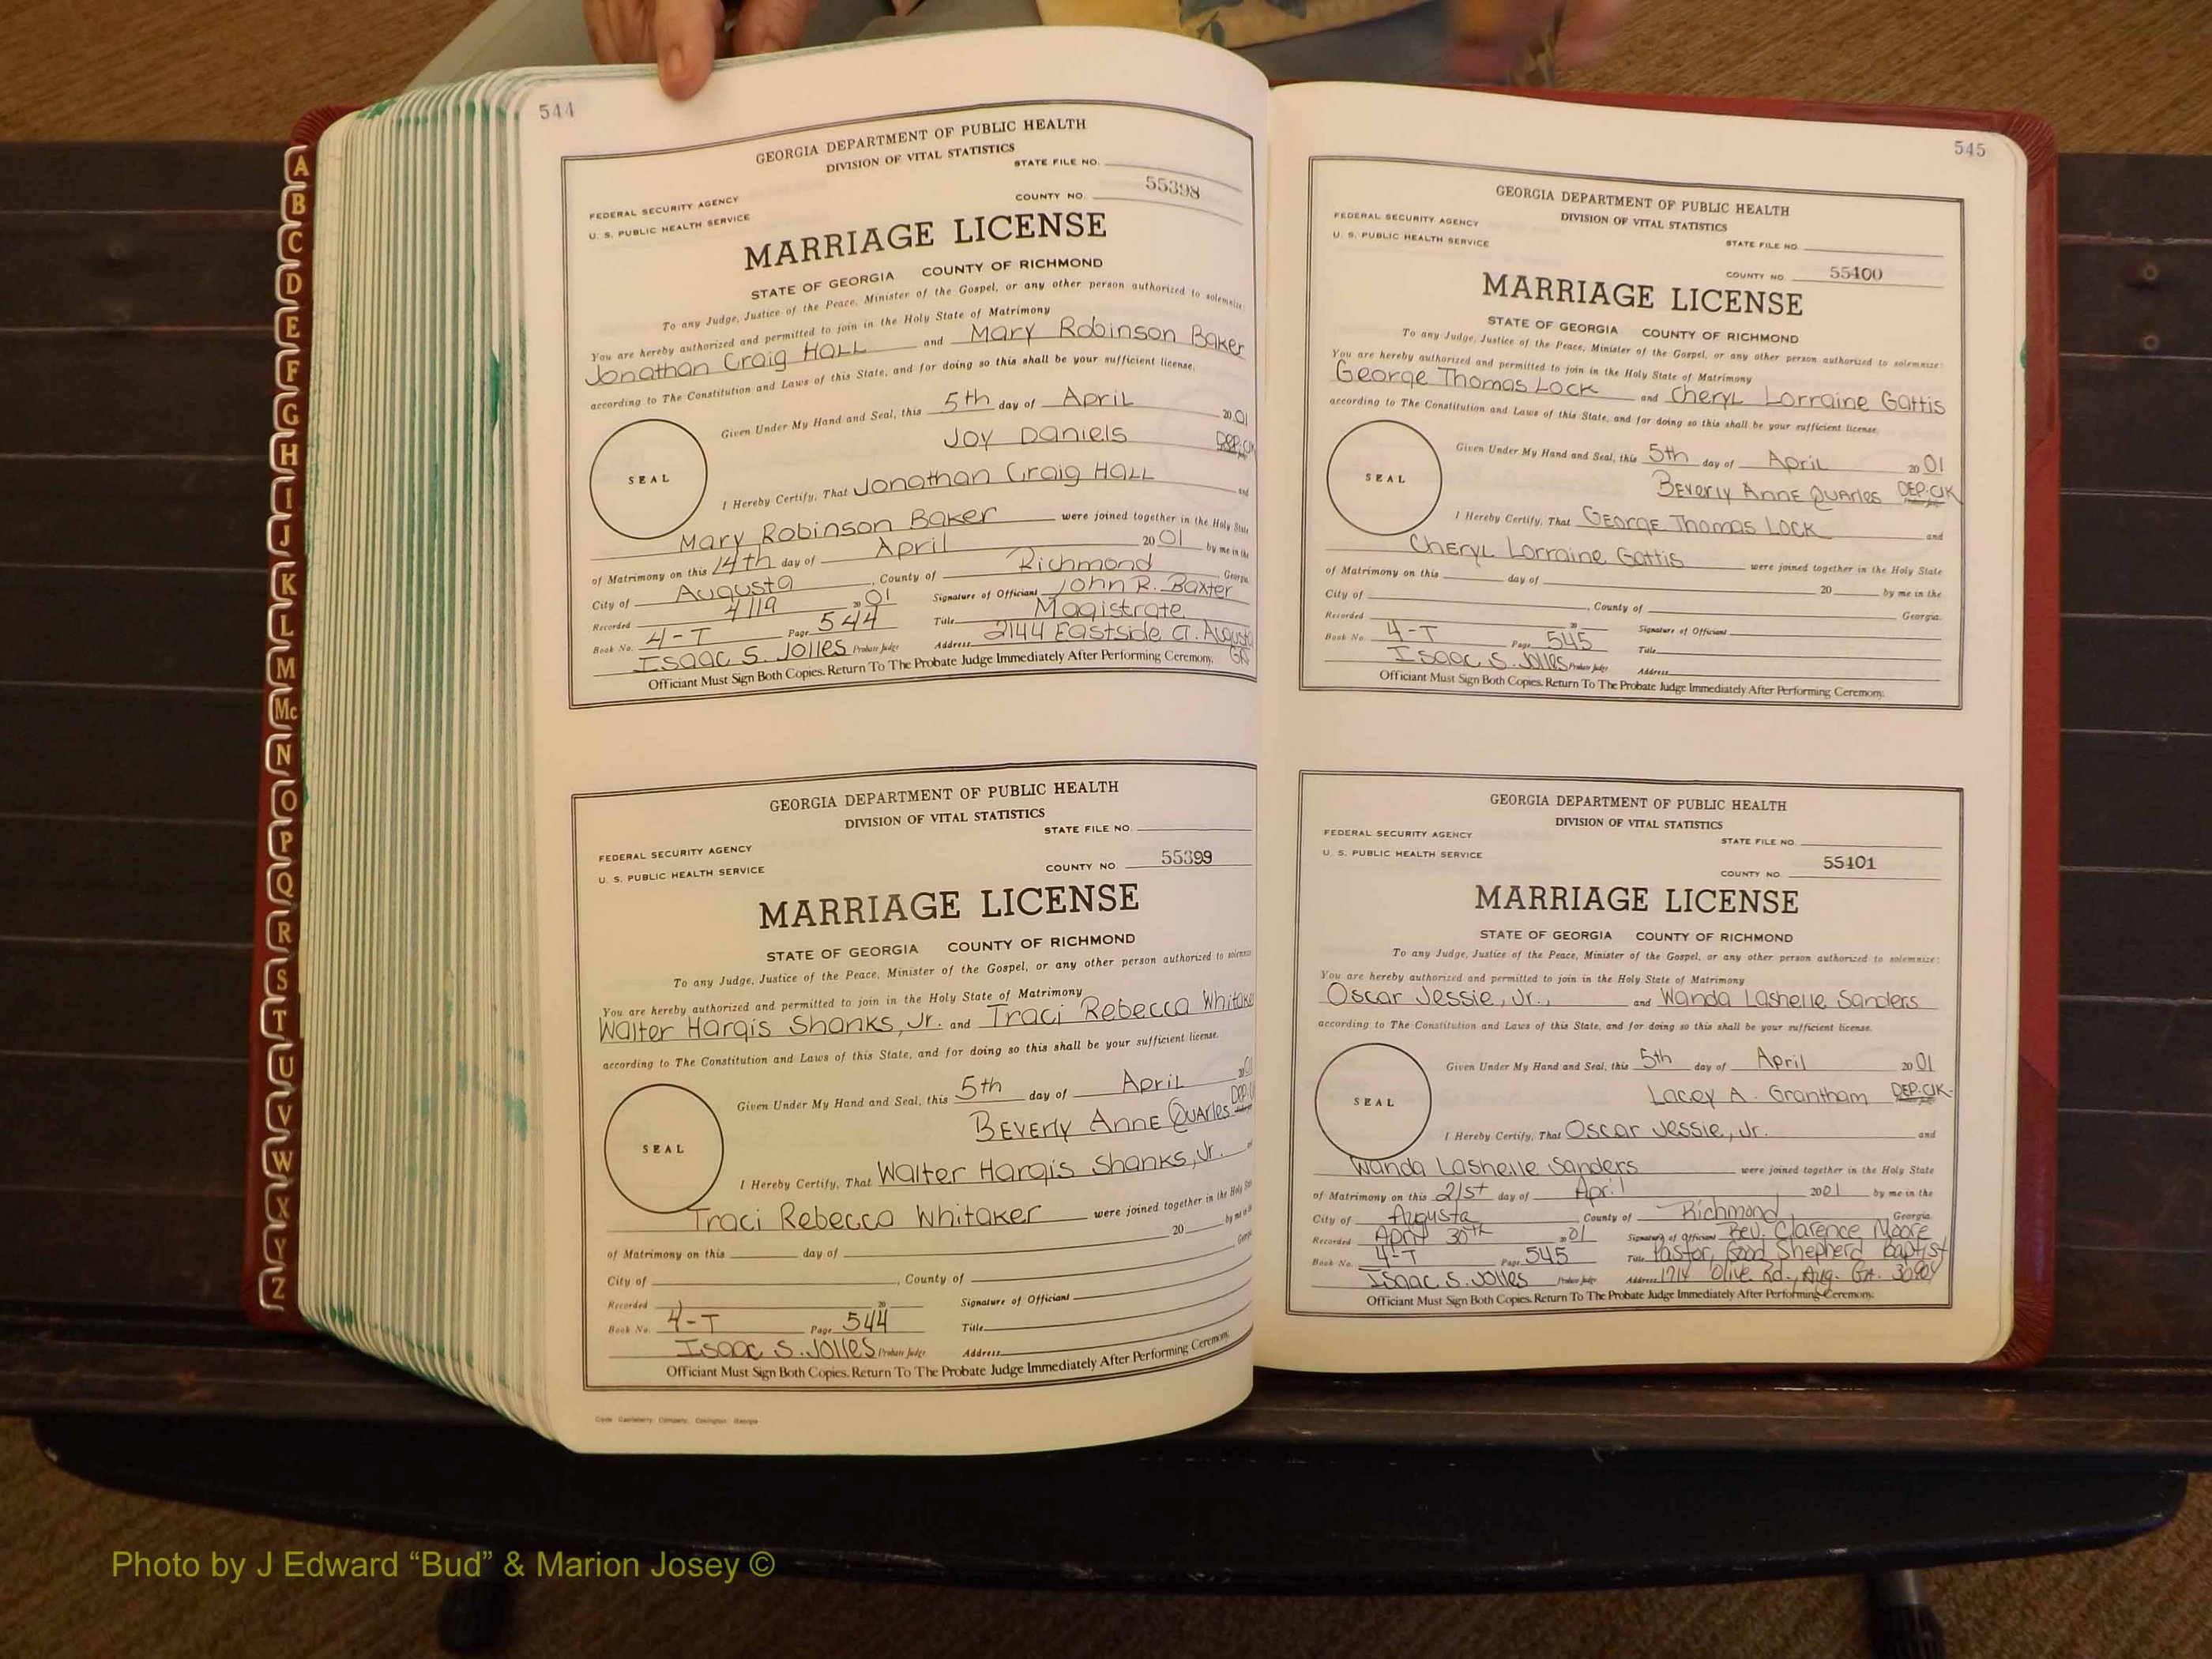 544
GEORGIA DEPARTMENT OF PUBLIC HEALTH
DIVISION OF VITAL STATISTICS
STATE FILE NO.
FEDERAL SECURITY AGENCY
U. S. PUBLIC HEALTH SERVICE
COUNTY NO. 55398
MARRIAGE LICENSE
STATE OF GEORGIA COUNTY OF RICHMOND
To any Judge, Justice of the Peace, Minister of the Gospel, or any other person authorized to solemnize:
You are hereby authorized and permitted to join in the Holy State of Matrimony
Jonathan Craig HALL and Mary Robinson Baker
according to The Constitution and Laws of this State, and for doing so this shall be your sufficient license.
Given Under My Hand and Seal, this 5th day of April 2001
Joy Daniels DEP.Clk
SEAL
I Hereby Certify, That Jonathan Craig HALL and
Mary Robinson Baker were joined together in the Holy State
of Matrimony on this 14th day of April 2001 by me in the
City of Augusta, County of Richmond, Georgia.
Recorded 4/19 2001 Signature of Officiant John R. Baxter
Book No. 4-T Page 544 Title Magistrate
Isaac S. Jolles Probate Judge Address 2144 Eastside Ct. Augusta GA
Officiant Must Sign Both Copies. Return To The Probate Judge Immediately After Performing Ceremony.
GEORGIA DEPARTMENT OF PUBLIC HEALTH
DIVISION OF VITAL STATISTICS
STATE FILE NO.
FEDERAL SECURITY AGENCY
U. S. PUBLIC HEALTH SERVICE
COUNTY NO. 55399
MARRIAGE LICENSE
STATE OF GEORGIA COUNTY OF RICHMOND
To any Judge, Justice of the Peace, Minister of the Gospel, or any other person authorized to solemnize
You are hereby authorized and permitted to join in the Holy State of Matrimony
Walter Hargis Shanks, Jr. and Traci Rebecca Whitaker
according to The Constitution and Laws of this State, and for doing so this shall be your sufficient license.
Given Under My Hand and Seal, this 5th day of April 2001
Beverly Anne Quarles DEP.Cl
SEAL
I Hereby Certify, That Walter Hargis Shanks, Jr.
Traci Rebecca Whitaker were joined together in the Holy State
of Matrimony on this day of 20 by me in the
City of , County of Georgia
Recorded 20 Signature of Officiant
Book No. 4-T Page 544 Title
Isaac S. Jolles Probate Judge Address
Officiant Must Sign Both Copies. Return To The Probate Judge Immediately After Performing Ceremony.
545
GEORGIA DEPARTMENT OF PUBLIC HEALTH
DIVISION OF VITAL STATISTICS
FEDERAL SECURITY AGENCY
U. S. PUBLIC HEALTH SERVICE
STATE FILE NO.
COUNTY NO. 55400
MARRIAGE LICENSE
STATE OF GEORGIA COUNTY OF RICHMOND
To any Judge, Justice of the Peace, Minister of the Gospel, or any other person authorized to solemnize:
You are hereby authorized and permitted to join in the Holy State of Matrimony
George Thomas Lock and Cheryl Lorraine Gattis
according to The Constitution and Laws of this State, and for doing so this shall be your sufficient license.
Given Under My Hand and Seal, this 5th day of April 2001
Beverly Anne Quarles DEP.Clk
SEAL
I Hereby Certify, That George Thomas Lock and
Cheryl Lorraine Gattis were joined together in the Holy State
of Matrimony on this day of 20 by me in the
City of , County of Georgia.
Recorded 20 Signature of Officiant
Book No. 4-T Page 545 Title
Isaac S. Jolles Probate Judge Address
Officiant Must Sign Both Copies. Return To The Probate Judge Immediately After Performing Ceremony.
GEORGIA DEPARTMENT OF PUBLIC HEALTH
DIVISION OF VITAL STATISTICS
FEDERAL SECURITY AGENCY
U. S. PUBLIC HEALTH SERVICE
STATE FILE NO.
COUNTY NO. 55401
MARRIAGE LICENSE
STATE OF GEORGIA COUNTY OF RICHMOND
To any Judge, Justice of the Peace, Minister of the Gospel, or any other person authorized to solemnize:
You are hereby authorized and permitted to join in the Holy State of Matrimony
Oscar Jessie, Jr., and Wanda Lashelle Sanders
according to The Constitution and Laws of this State, and for doing so this shall be your sufficient license.
Given Under My Hand and Seal, this 5th day of April 2001
Lacey A. Grantham DEP.Clk.
SEAL
I Hereby Certify, That Oscar Jessie, Jr. and
Wanda Lashelle Sanders were joined together in the Holy State
of Matrimony on this 21st day of April 2001 by me in the
City of Augusta, County of Richmond, Georgia.
Recorded April 30th 2001 Signature of Officiant Rev. Clarence Moore
Book No. 4-T Page 545 Title Pastor, Good Shepherd Baptist
Isaac S. Jolles Probate Judge Address 1714 Olive Rd., Aug. GA. 30904
Officiant Must Sign Both Copies. Return To The Probate Judge Immediately After Performing Ceremony.
A
B
C
D
E
F
G
H
I
J
K
L
M
Mc
N
O
P
Q
R
S
T
U
V
W
X
Y
Z
Photo by J Edward “Bud” & Marion Josey ©